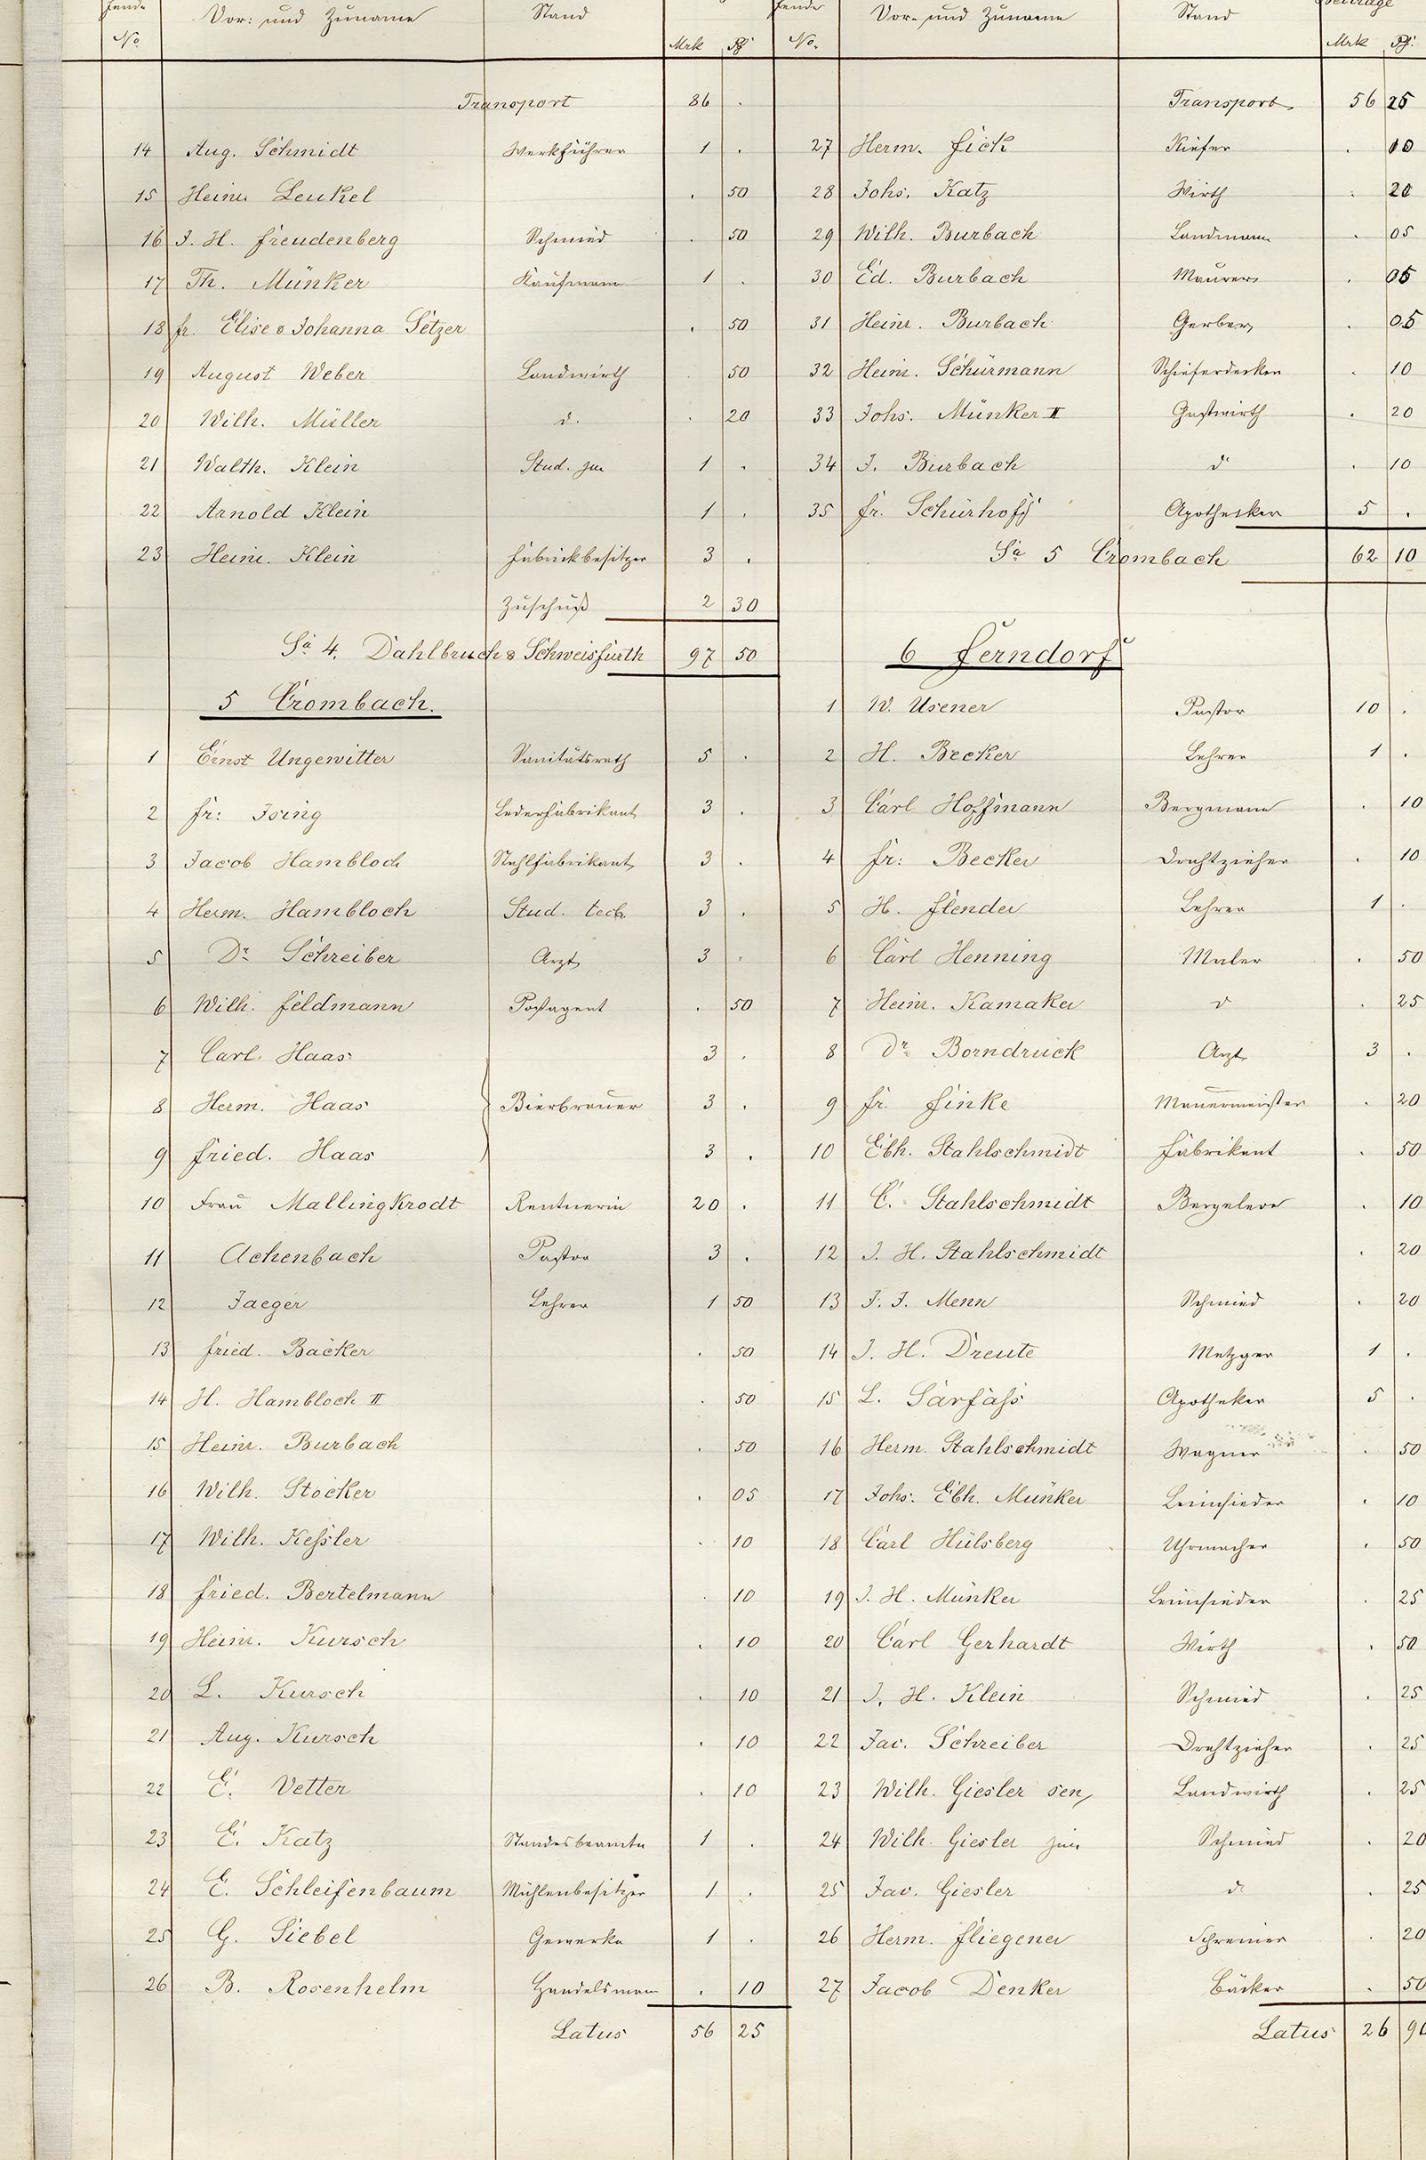 fende No. Vor: und Zuname Stand Mrk Pf
Transport 86 .
14 Aug. Schmidt Werkführer 1 .
15 Heinr. Leukel . 50
16 J. H. Freudenberg Schmied . 50
17 Th. Münker Kaufmann 1 .
18 Fr. Elise & Johanna Setzer . 50
19 August Weber Landwirth . 50
20 Wilh. Müller d. . 20
21 Walth. Klein Stud. jur 1 .
22 Arnold Klein 1 .
23 Heinr. Klein Fabrickbesitzer 3 .
Zuschuß 2 30
Sa 4. Dahlbruch & Schweisfurth 97 50
5 Crombach.
1 Ernst Ungewitter Sanitätsrath 5 .
2 Fr: Ising Lederfabrikant 3 .
3 Jacob Hambloch Stahlfabrikant 3 .
4 Herm. Hambloch Stud. tech. 3 .
5 Dr. Schreiber Arzt 3 .
6 Wilh. Feldmann Postagent . 50
7 Carl Haas 3 .
8 Herm. Haas Bierbrauer 3 .
9 Fried. Haas 3 .
10 Frau Mallingkrodt Rentnerin 20 .
11 Achenbach Pastor 3 .
12 Jaeger Lehrer 1 50
13 Fried. Bäcker . 50
14 H. Hambloch II . 50
15 Heinr. Burbach . 50
16 Wilh. Stöcker . 05
17 Wilh. Keßler . 10
18 Fried. Bertelmann . 10
19 Heinr. Kursch . 10
20 L. Kursch . 10
21 Aug. Kursch . 10
22 E. Vetter . 10
23 E. Katz Standesbeamte 1 .
24 E. Schleifenbaum Mühlenbesitzer 1 .
25 G. Siebel Gewerke 1 .
26 B. Rosenhelm Handelsmann . 10
Latus 56 25
fende No. Vor- und Zuname Stand Beiträge Mrk Pf.
Transport 56 25
27 Herm. Fick Küfer . 10
28 Johs. Katz Wirth . 20
29 Wilh. Burbach Landmann . 05
30 Ed. Burbach Maurer . 05
31 Heinr. Burbach Gerber . 05
32 Heinr. Schürmann Schieferdecker . 10
33 Johs. Münker II Gastwirth . 20
34 J. Burbach d . 10
35 Fr. Schürhoff Apotheker 5 .
Sa 5 Crombach 62 10
6 Ferndorf
1 W. Usener Pastor 10 .
2 H. Becker Lehrer 1 .
3 Carl Hoffmann Bergmann . 10
4 Fr: Becker Drahtzieher . 10
5 H. Flender Lehrer 1 .
6 Carl Henning Maler . 50
7 Heinr. Kamaker d . 25
8 Dr. Borndruck Arzt 3 .
9 Fr. Finke Mauermeister . 20
10 Ebh. Stahlschmidt Fabrikant . 50
11 E. Stahlschmidt Bergeleve . 10
12 J. H. Stahlschmidt . 20
13 J. J. Menn Schmied . 20
14 J. H. Dreute Metzger 1 .
15 L. Sarfaß Apotheker 5 .
16 Herm. Stahlschmidt Wagner . 50
17 Johs. Ebh. Münker Leimsieder . 10
18 Carl Hülsberg Uhrmacher . 50
19 J. H. Münker Leimsieder . 25
20 Carl Gerhardt Wirth . 50
21 J. H. Klein Schmied . 25
22 Jac. Schreiber Drahtzieher . 25
23 Wilh. Giesler sen, Landwirth . 25
24 Wilh. Giesler jun Schmied . 20
25 Jac. Giesler d. . 25
26 Herm. Fliegener Schreiner . 20
27 Jacob Denker Bäcker . 50
Latus 26 90